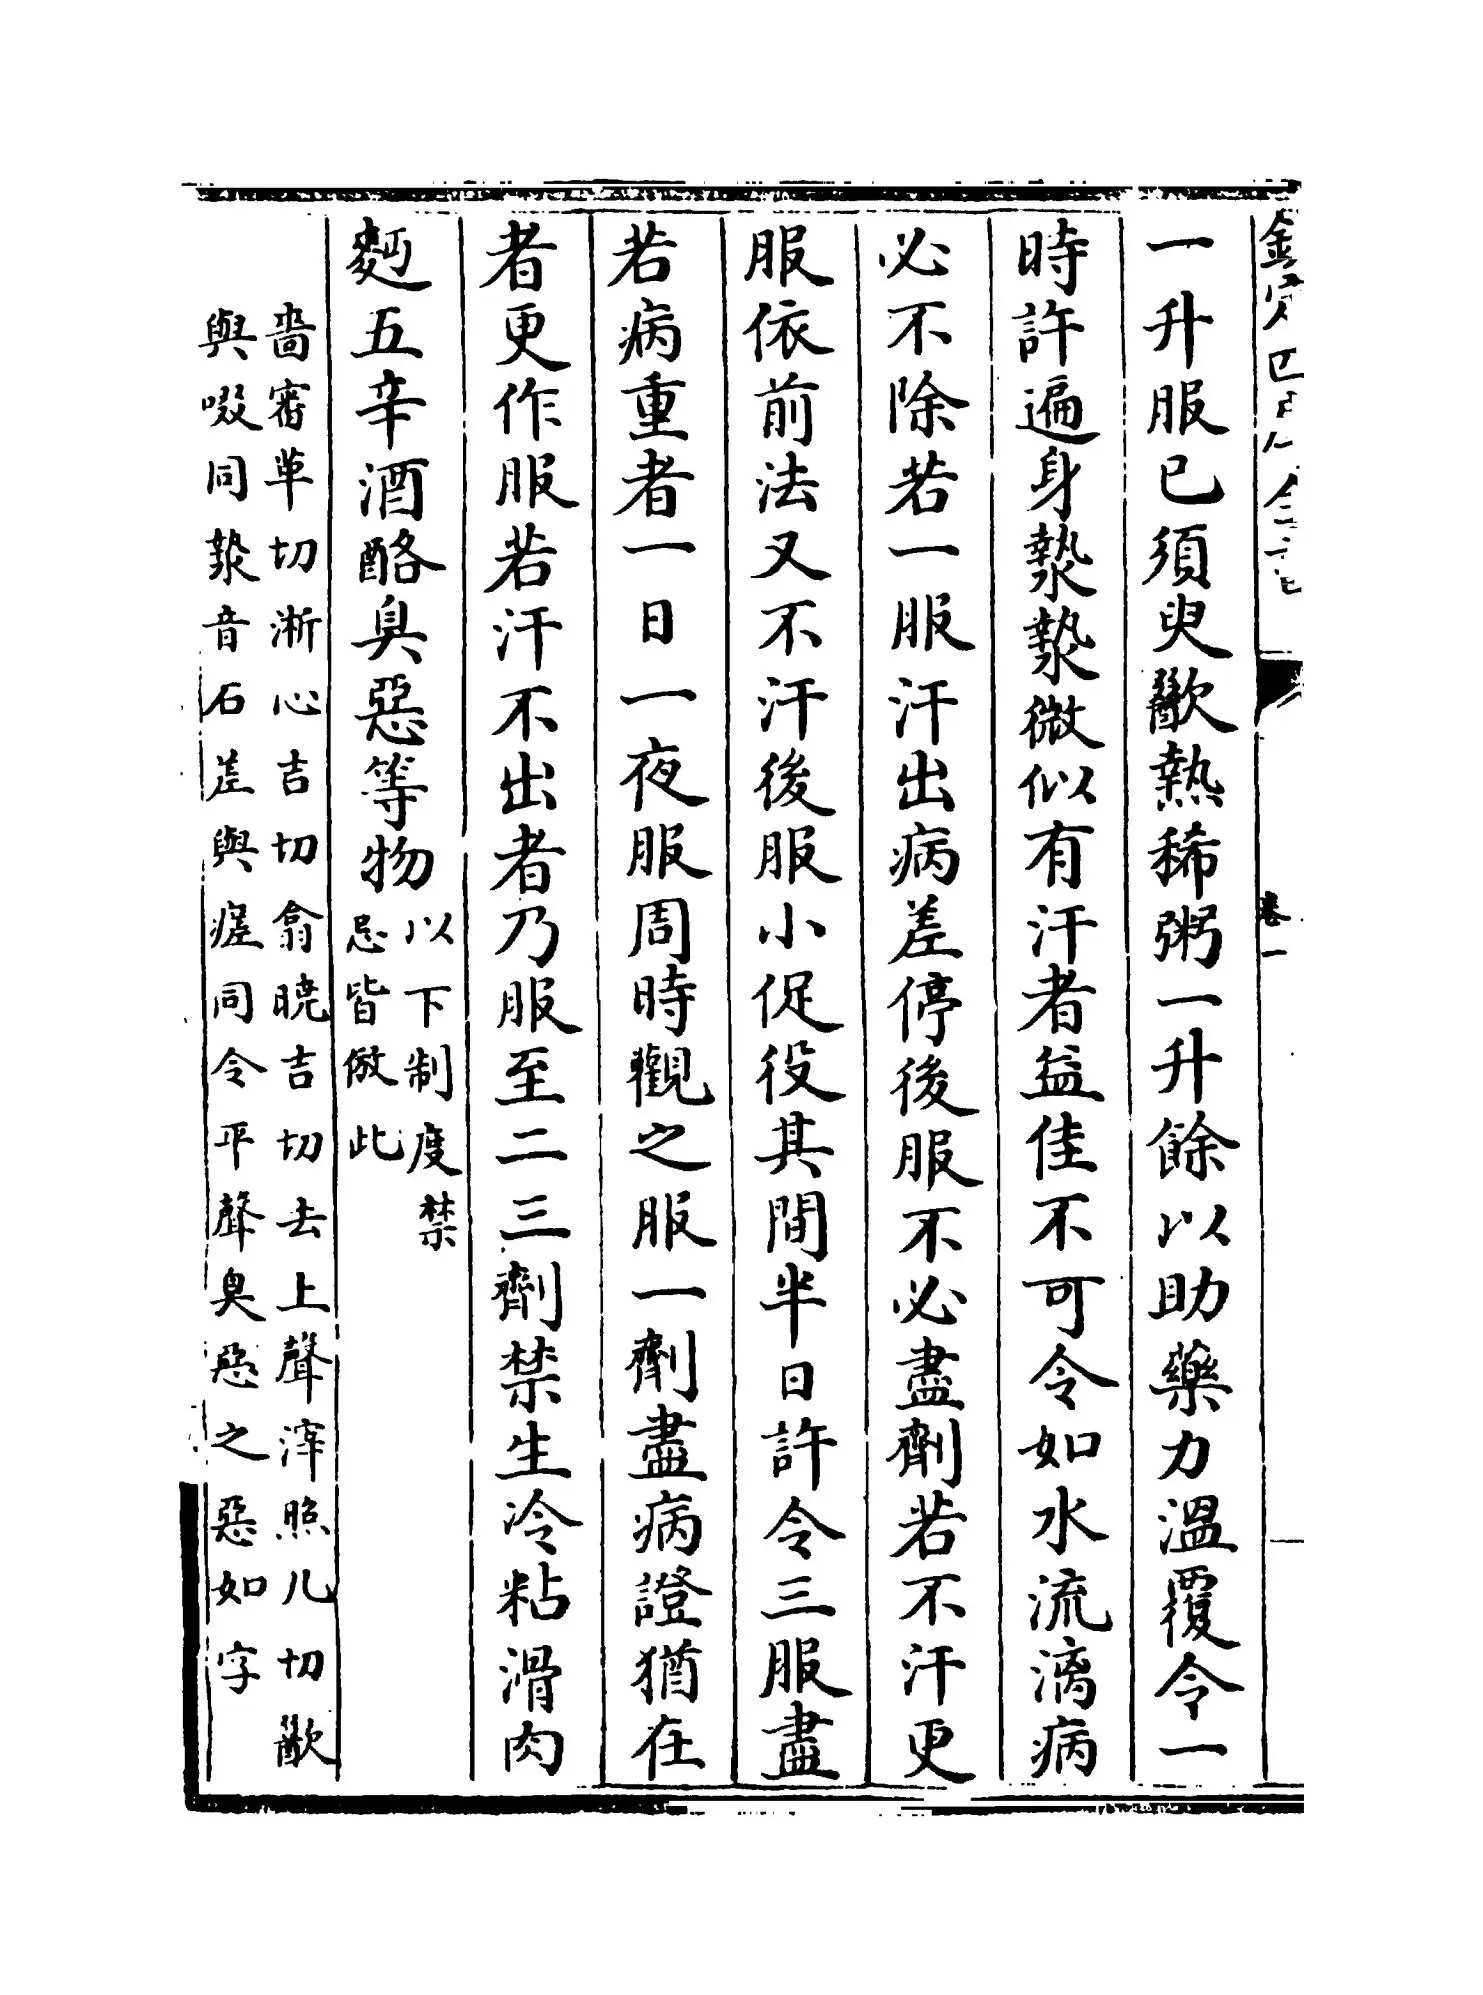 欽定四庫全書
卷一
一升服已須臾歠熱稀粥一升餘以助藥力溫覆令一
時許遍身漐漐微似有汗者益佳不可令如水流漓病
必不除若一服汗出病差停後服不必盡劑若不汗更
服依前法又不汗後服小促役其間半日許令三服盡
若病重者一日一夜服周時觀之服一劑盡病證猶在
者更作服若汗不出者乃服至二三劑禁生冷粘滑肉
麪五辛酒酪臭惡等物
以下制度禁
忌皆倣此
嗇審革切淅心吉切翕曉吉切去上聲滓照几切歠
與啜同漐音石差與瘥同令平聲臭惡之惡如字